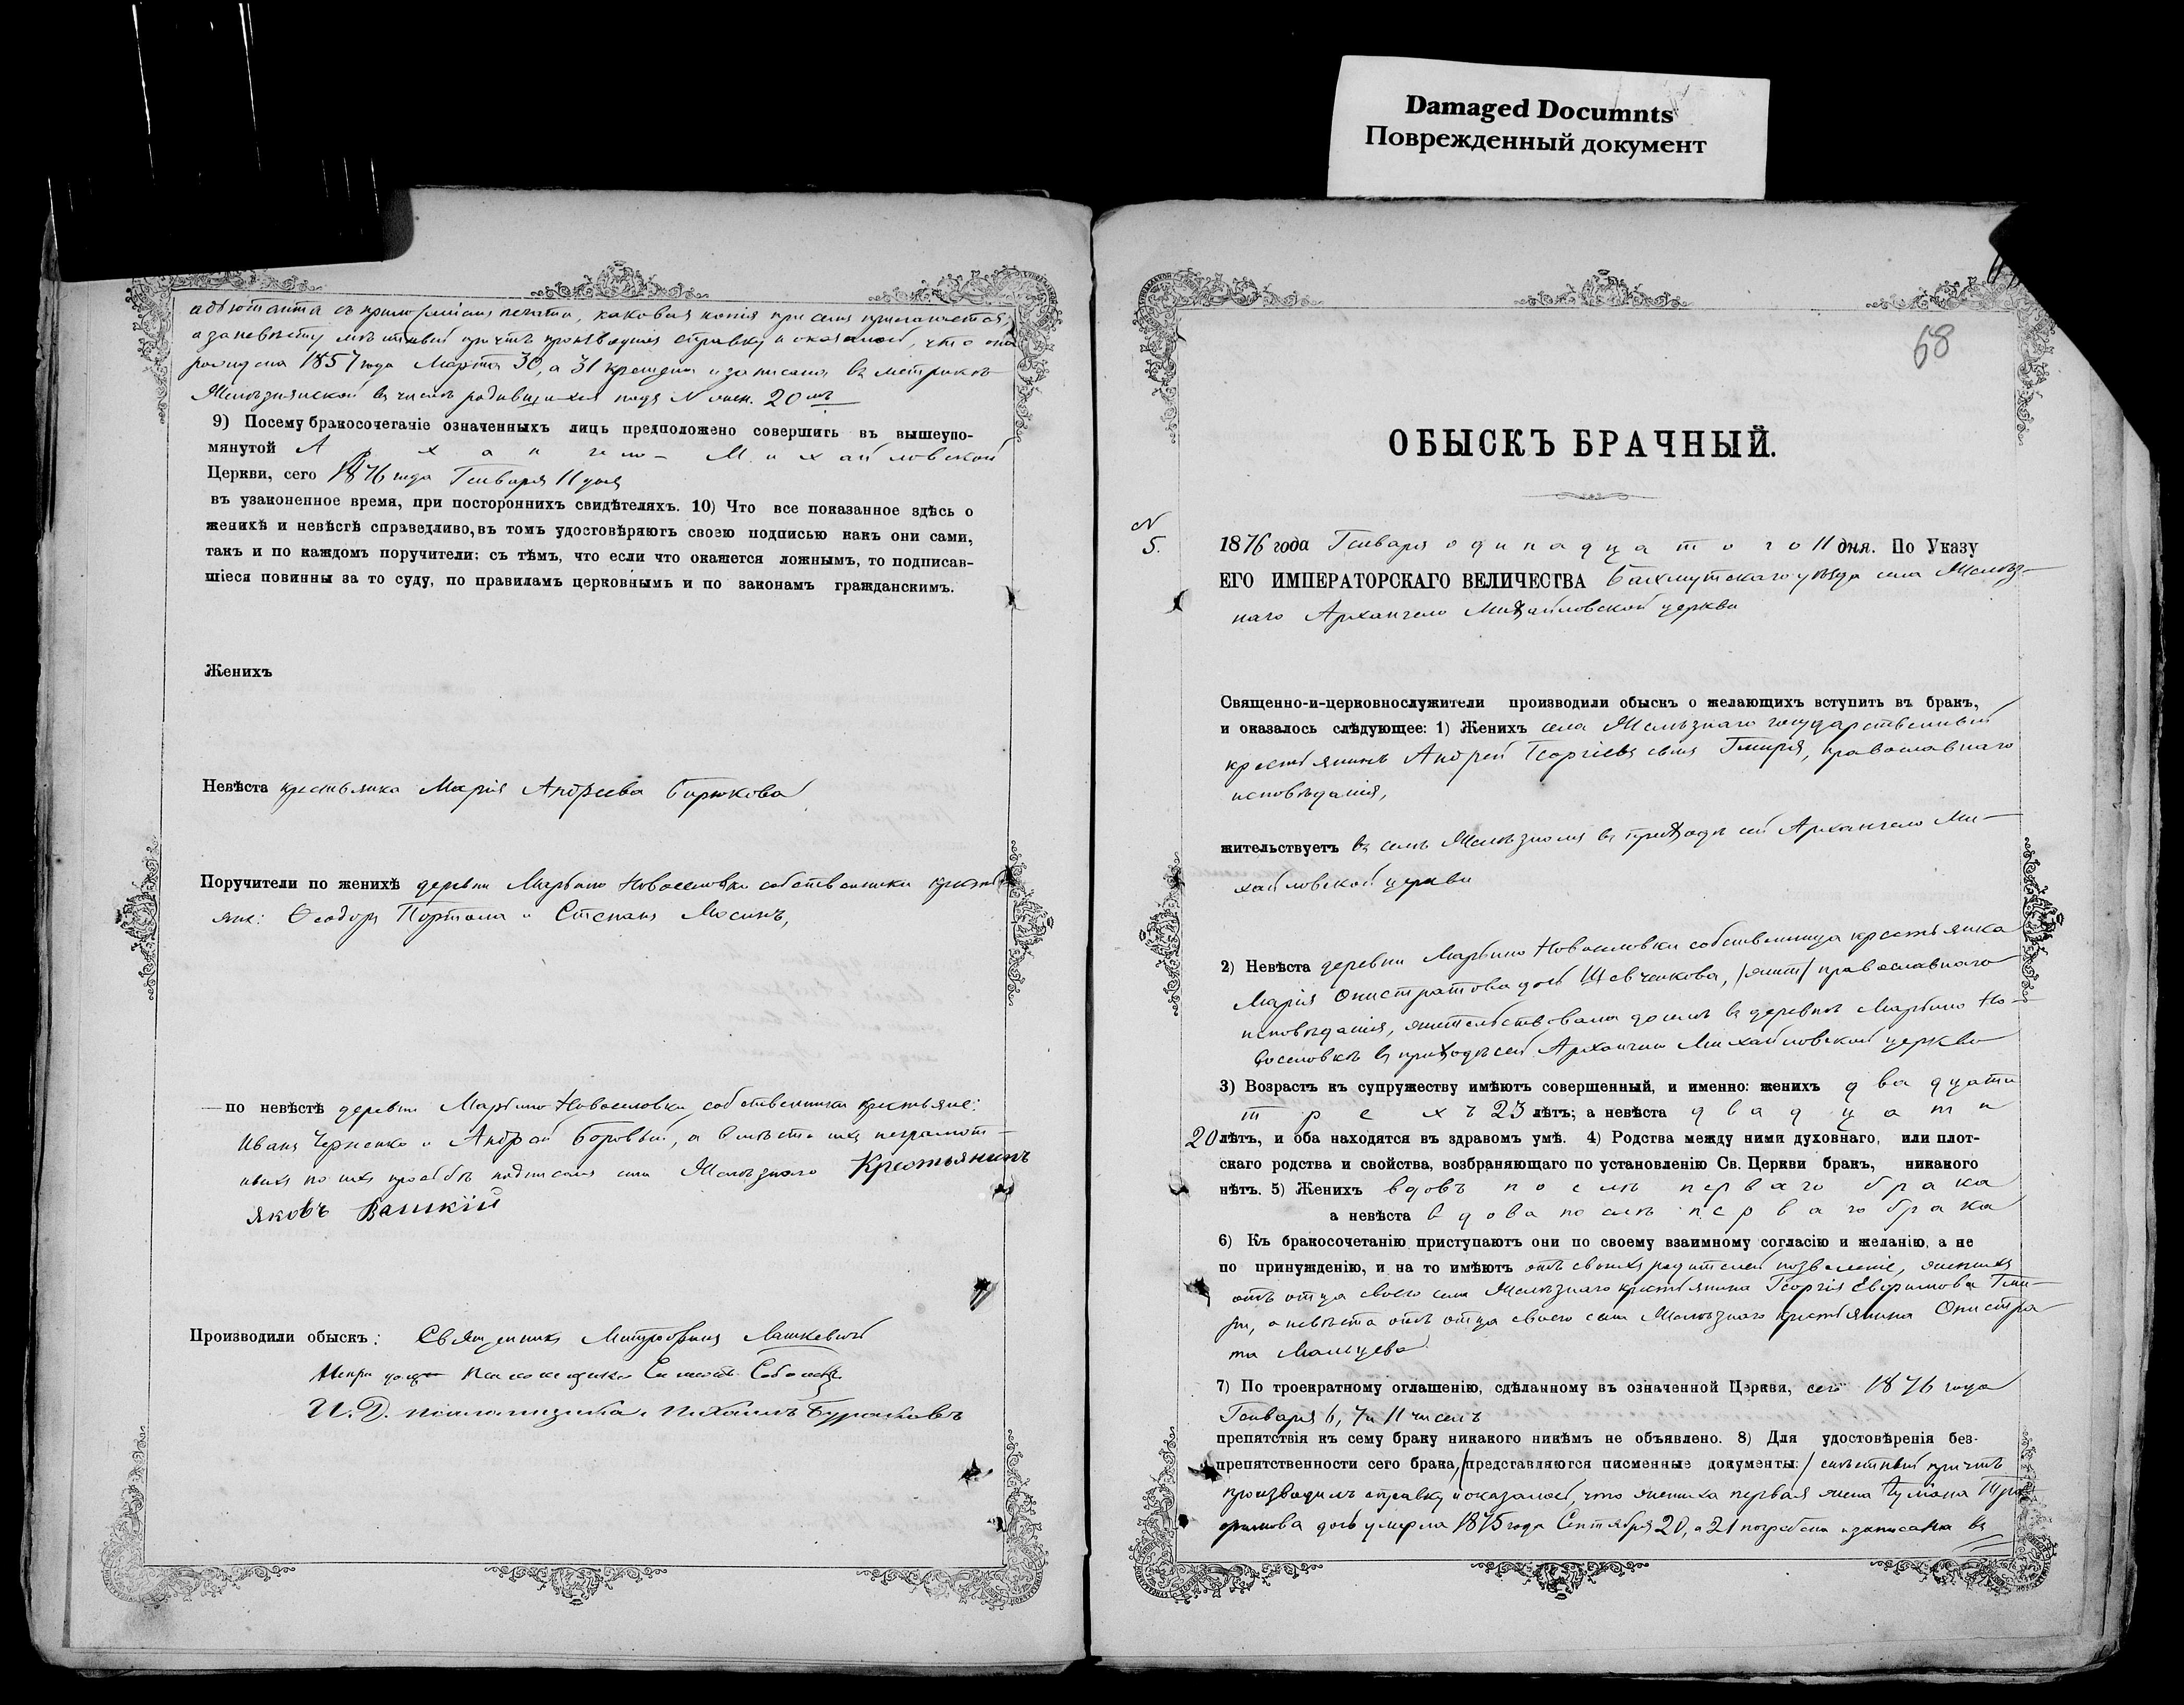 Damaged Documnts
Поврежденный документ
адъютанта съ приложеніемъ печати, каковая копія при семъ прилагается,
а за невѣсту мѣстный причтъ производилъ справку и оказалось, что она
рождена 1857 года Марта 30, а 31 крещена и записана въ метрикѣ
Желѣзнянской въ числѣ родившихся подъ N жен. 20мъ
9) Посему бракосочетаніе означенныхъ лицъ предположено совершить въ вышеупо-
мянутой Архангело-Михайловской
Церкви, сего 1876 года Генваря 11 дня
въ узаконенное время, при постороннихъ свидѣтеляхъ. 10) Что все показанное здѣсь о
женихѣ и невѣстѣ справедливо, въ томъ удостовѣряютъ своею подписью какъ они сами,
такъ и по каждомъ поручители: съ тѣмъ, что если что окажется ложнымъ, то подписав-
шіеся повинны за то суду, по правиламъ церковнымъ и по законамъ гражданскимъ.
Женихъ
Невѣста крестьянка Марія Андреева Бирюкова
Поручители по женихѣ деревни Марьино Новоселовки собственники крестья
яне: Ѳеодоръ и Степанъ Мосинъ,
— по невѣстѣ деревни Марьино Новоселовки, собственники крестьяне:
Иванъ Черненко и Андрей Боровый, а вмѣсто ихъ неграмот-
ныхъ по ихъ прозьбѣ подписался села Желѣзнаго Крестьянинъ
Яковъ
Производили обыскъ: Священникъ Митрофанъ Лашкевичъ
И. Д. псаломщика Михаилъ Бураковъ
68
ОБЫСКЪ БРАЧНЫЙ.
N
5.
1876 года Генваря одинадцатого 11 дня. По Указу
ЕГО ИМПЕРАТОРСКАГО ВЕЛИЧЕСТВА Бахмутскаго уѣзда села Желѣз-
наго Архангело Михайловской церкви
Священно-и-церковнослужители производили обыскъ о желающихъ вступить въ бракъ,
и оказалось слѣдующее: 1) Женихъ села Желѣзнаго государственный
крестьянинъ Андрей Георгіевъ сынъ Гмиря, православнаго
исповѣданія,
жительствуетъ въ селѣ Желѣзномъ въ приходѣ сей Архангело Ми-
хайловской церкви
2) Невѣста деревни Марьино Новоселовки собственница крестьянка
Марія Онистратова дочь Шевченкова, православнаго
исповѣданія, жительствовала доселѣ въ деревнѣ Марьино Но-
воселовкѣ въ приходѣ сей Архангело Михайловской церкви
3) Возрастъ къ супружеству имѣютъ совершенный, и именно: женихъ двадцати
трехъ 23 лѣтъ; а невѣста двадцати
20 лѣтъ, и оба находятся въ здравомъ умѣ. 4) Родства между ними духовнаго, или плот-
скаго родства и свойства, возбраняющаго по установленію Св. Церкви бракъ, никакого
нѣтъ. 5) Женихъ вдовъ послѣ перваго брака
а невѣста вдова послѣ перваго брака
6) Къ бракосочетанію приступаютъ они по своему взаимному согласію и желанію, а не
по принужденію, и на то имѣютъ отъ своихъ родителей позволеніе, женихъ
отъ отца своего села Желѣзнаго крестьянина Георгія Евфимова Гми-
ри, а невѣста отъ отца своего села Желѣзнаго крестьянина Онистра
та Мальцева
7) По троекратному оглашенію, сдѣланному въ означенной Церкви, сего 1876 года
Генваря 6, 7 и 11 чиселъ
препятствія къ сему браку никакого никѣмъ не объявлено. 8) Для удостовѣренія без-
препятственности сего брака, /представляются писменные документы:/ мѣстный причтъ
производилъ справку и оказалось, что жениха первая жена Іуліана Тро
фимова дочь умерла 1875 года Сентября 20, а 21 погребена и записана въ